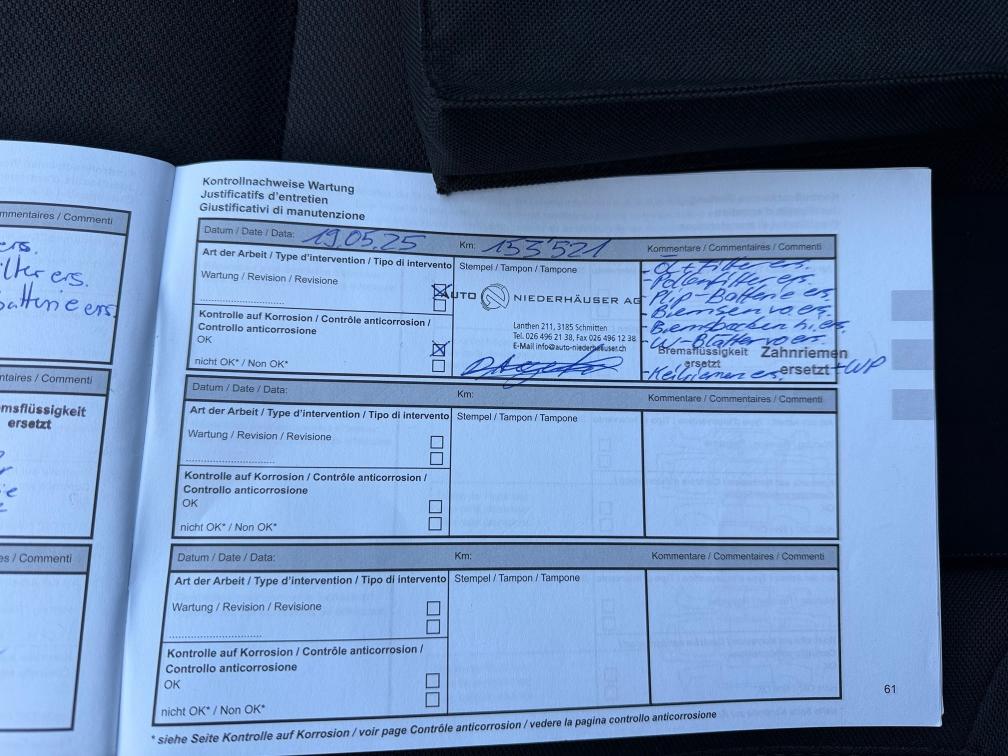 Kontrollnachweise Wartung
Justificatifs d'entretien
Giustificativi di manutenzione
mmentaires / Commenti
ers.
ilter ers.
batterie ers.
ntaires / Commenti
msflüssigkeit
ersetzt
es / Commenti
Datum / Date / Data: 19.05.25 Km: 153'521 Kommentare / Commentaires / Commenti
Art der Arbeit / Type d'intervention / Tipo di intervento Stempel / Tampon / Tampone
Wartung / Revision / Revisione
Kontrolle auf Korrosion / Contrôle anticorrosion /
Controllo anticorrosione
OK
nicht OK* / Non OK*
AUTO NIEDERHÄUSER AG
Lanthen 211, 3185 Schmitten
Tel. 026 496 21 38, Fax 026 496 12 38
E-Mail info@auto-niederhäuser.ch
- Öl+Filter ers.
- Pollenfilter ers.
- Plip-Batterie ers.
- Bremsen vo. ers.
- Bremsbacken hi. ers.
- W-Blätter vo ers.
Bremsflüssigkeit Zahnriemen
ersetzt ersetzt +WP
- Keilriemen ers.
Datum / Date / Data: Km: Kommentare / Commentaires / Commenti
Art der Arbeit / Type d'intervention / Tipo di intervento Stempel / Tampon / Tampone
Wartung / Revision / Revisione
Kontrolle auf Korrosion / Contrôle anticorrosion /
Controllo anticorrosione
OK
nicht OK* / Non OK*
Datum / Date / Data: Km: Kommentare / Commentaires / Commenti
Art der Arbeit / Type d'intervention / Tipo di intervento Stempel / Tampon / Tampone
Wartung / Revision / Revisione
Kontrolle auf Korrosion / Contrôle anticorrosion /
Controllo anticorrosione
OK
nicht OK* / Non OK*
61
* siehe Seite Kontrolle auf Korrosion / voir page Contrôle anticorrosion / vedere la pagina controllo anticorrosione